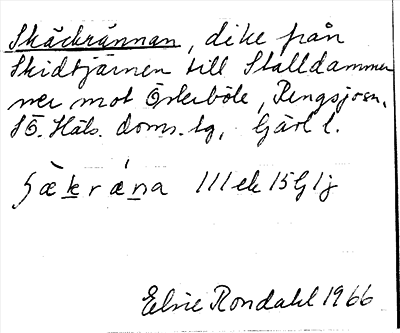 Skäckrännan, dike från
Skidtjärnen till Stalldammen
ner mot Österböle, Rengsjö sn,
SÖ. Häls. doms. tg, Gävl l.
111ek 15G1j
Elsie Rondahl 1966